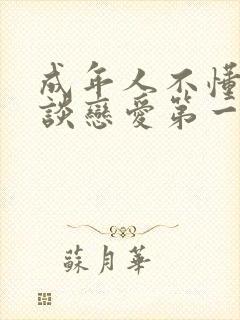 成年人不懂
談戀愛第一
蘇月華